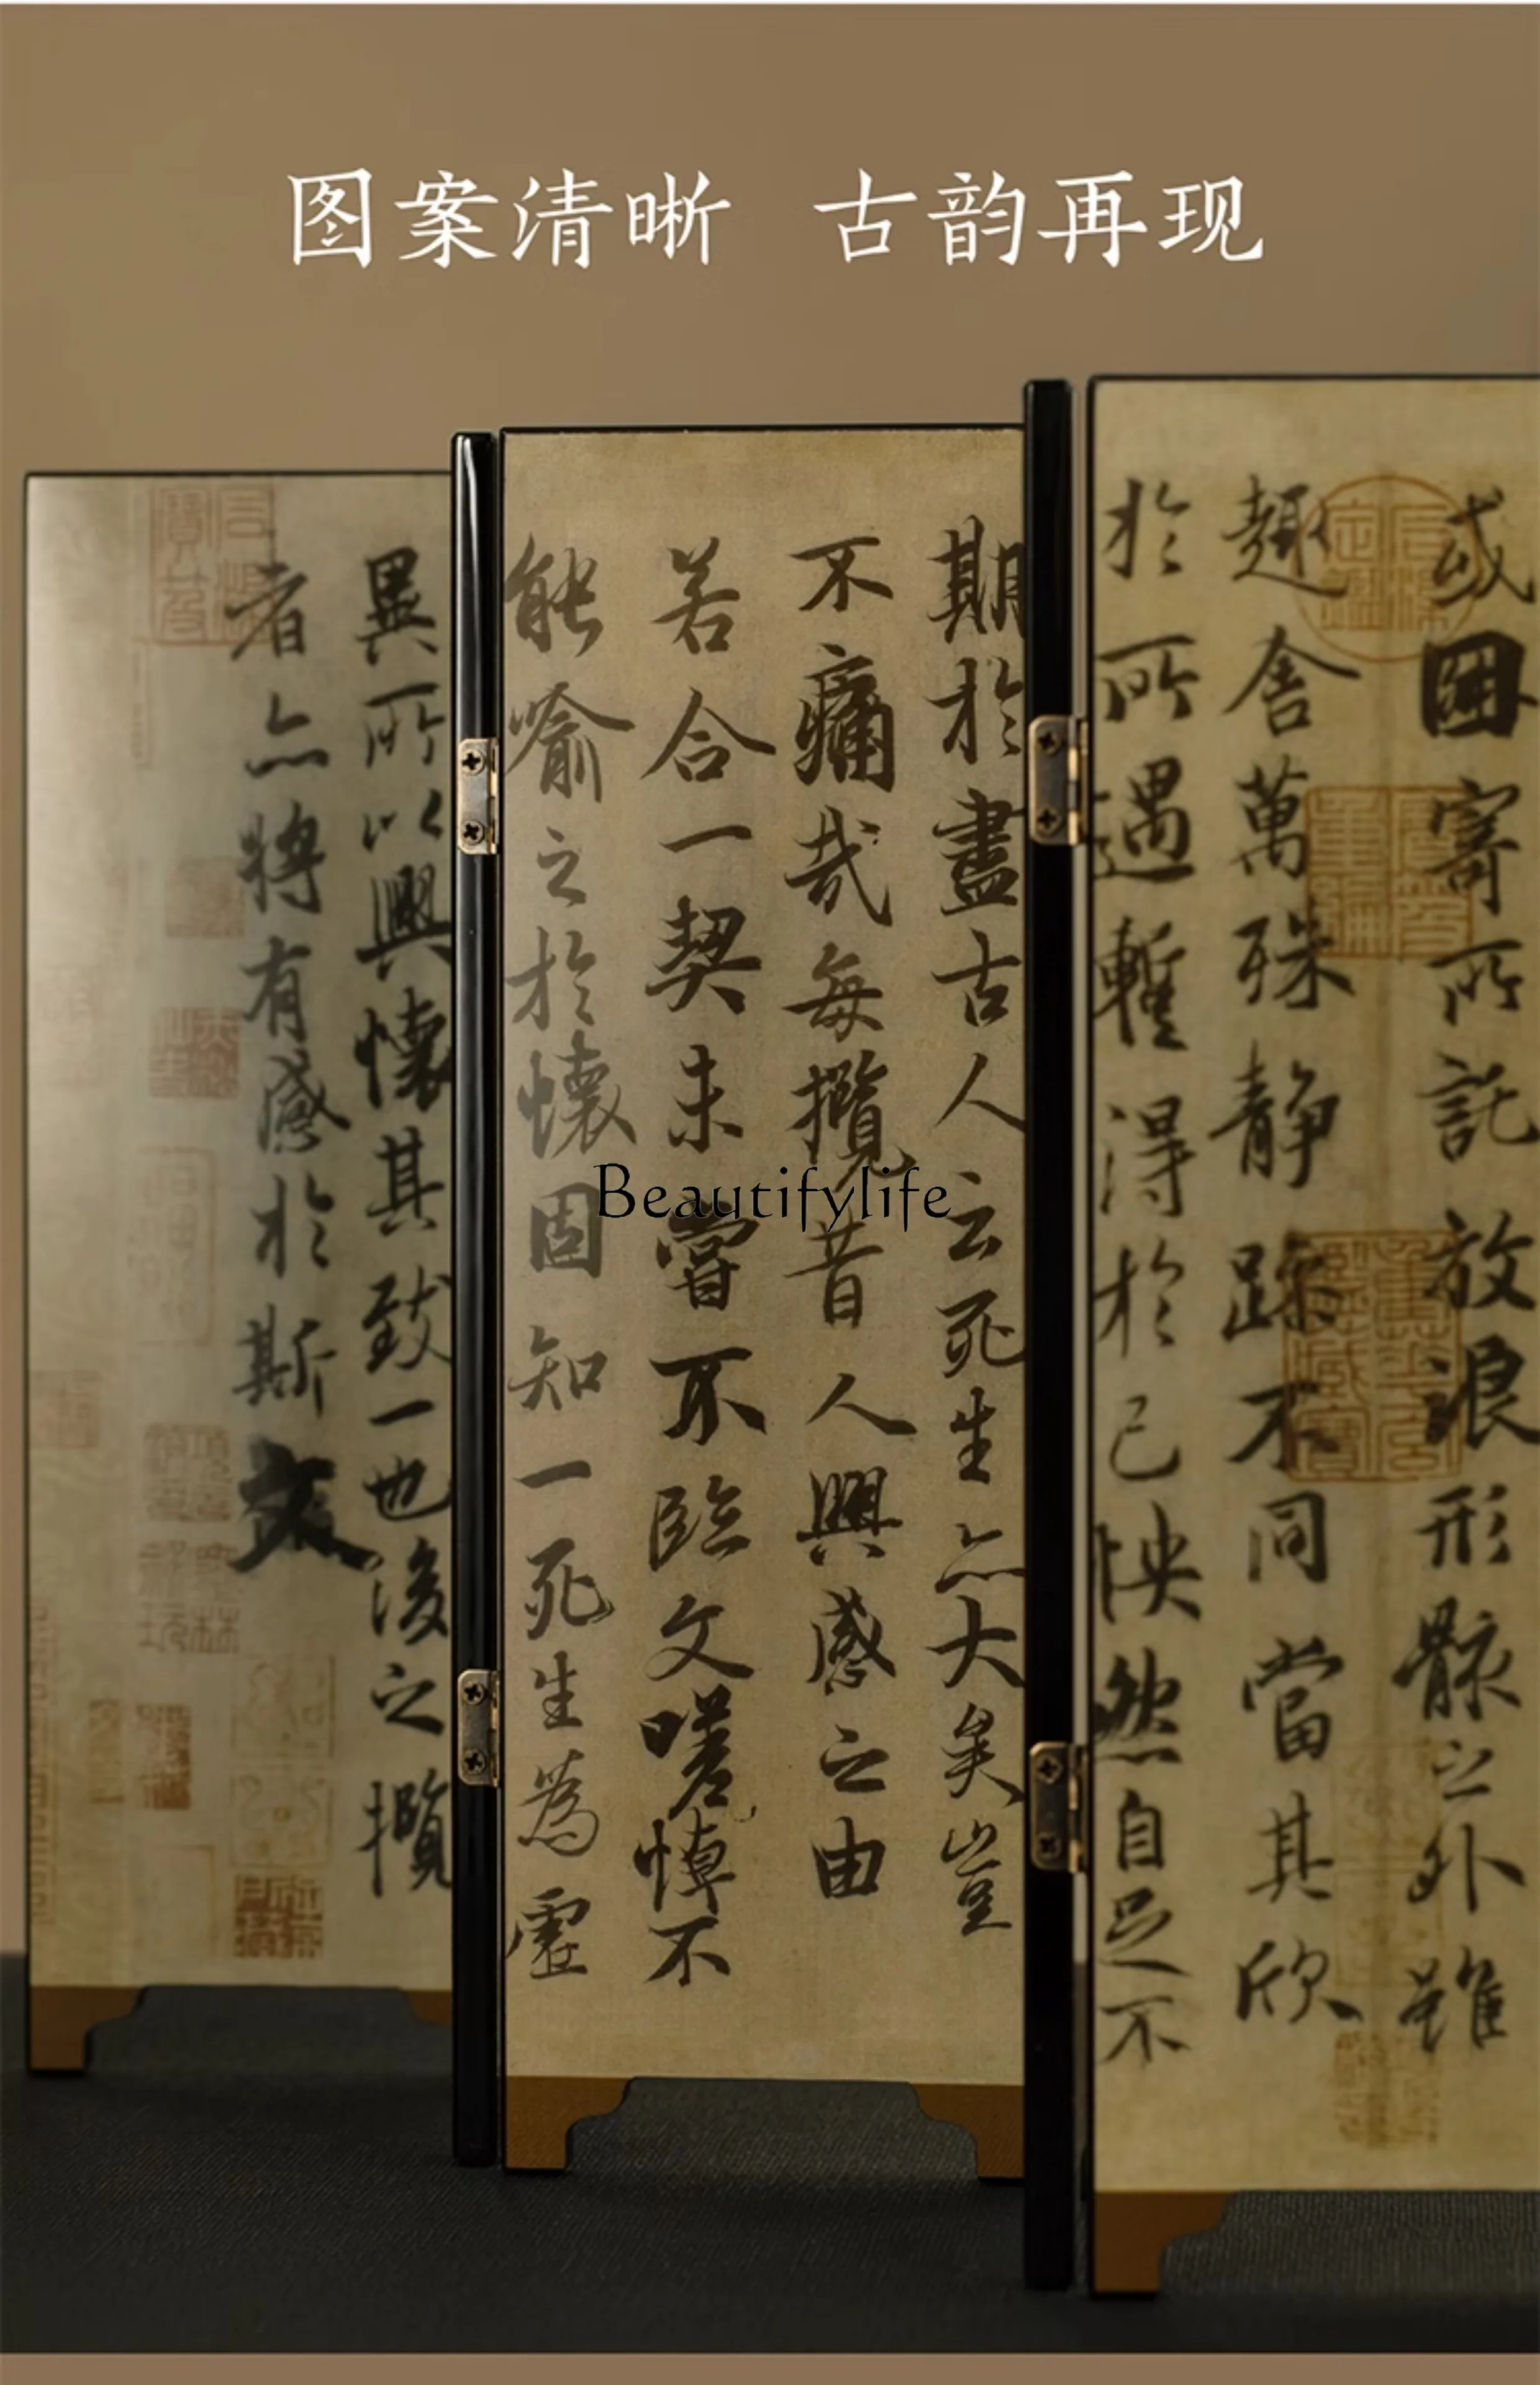 图案清晰 古韵再现
或因寄所託放浪形骸之外雖
趣舍萬殊静躁不同當其欣
於所遇蹔得於己怏然自足不
期於盡古人云死生亦大矣豈
不痛哉每攬昔人興感之由
若合一契未嘗不臨文嗟悼不
能喻之於懷固知一死生為虛
異所以興懷其致一也後之攬
者亦將有感於斯文
Beautifylife